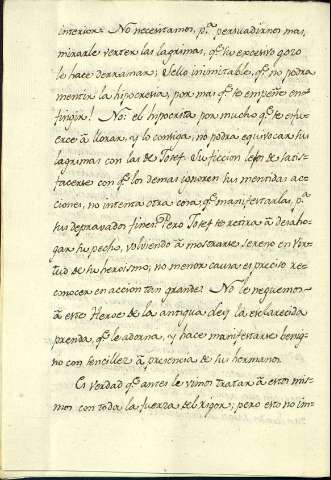 interior. No necesitamos, pª. persuadirnos mas,
mirarle verter las lagrimas, qᵉ. su excesivo gozo
le hace derramar; sello inimitable, qᵉ. no podra
mentir la hipocresia, por mas qᵉ. se empeñe en
fingir! No: el hipocrita por mucho qᵉ. se esfu-
erce â llorar, y lo consiga, no podra equivocar sus
lagrimas con las de Josef. Su ficcion lejos de satis-
facerse con qᵉ. los demas ignoren sus mentidas ac-
ciones, no intenta otra cosa, qᵉ. manifestarlas, pª.
sus depravados fines. Pero Josef se retira â desaho-
gar su pecho, volviendo â mostrarse sereno en vir-
tud de su heroismo; no menor causa es preciso re-
conocer en accion tan grande. No le neguemos
â este Heroe de la antigua Ley la esclarecida
prenda, qᵉ. le adorna, y hace manifestarse benig-
no con sencillez â presencia de sus hermanos.
Es verdad qᵉ. antes le vimos tratar â estos mis-
mos con toda la fuerza del rigor; pero esto no im-